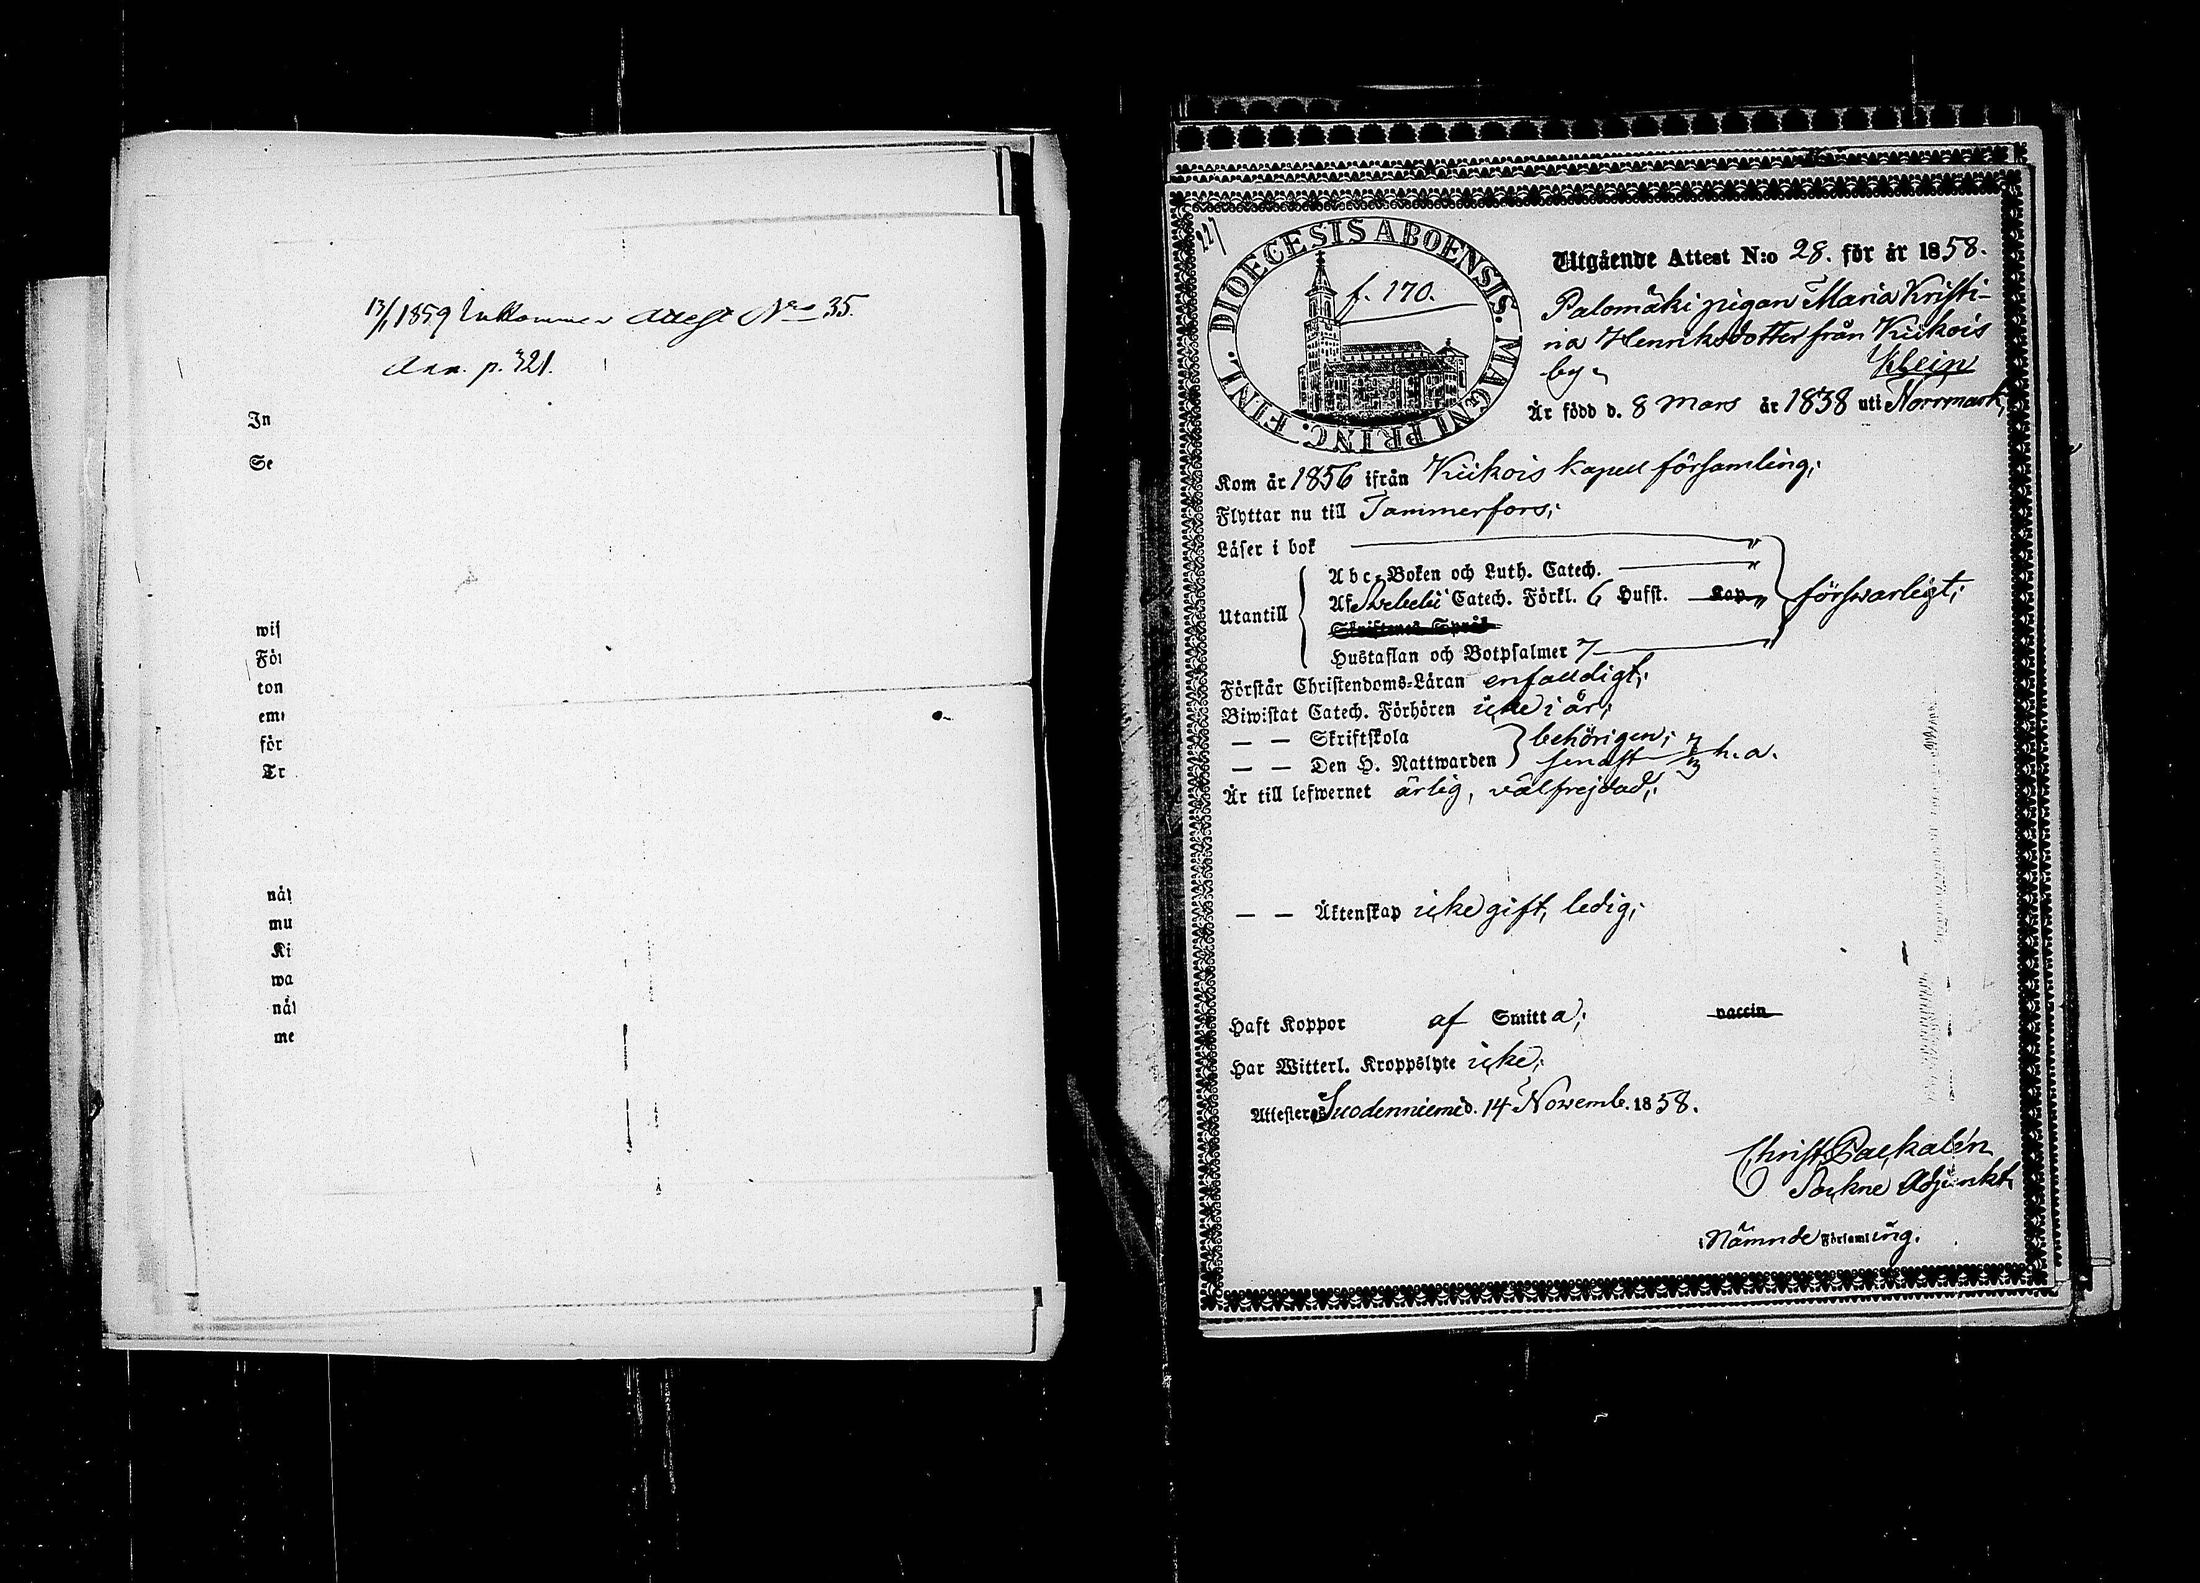 13/1 1859 Inkommen Attest No 35.
Ann. p. 321.
In
Se
wis
För
ton
em
för
Tr
nåt
mu
Ki
wa
nåt
me
DIOECESIS ABOENSIS. MAGNI PRINC. FINL.
f. 170.
Utgående Attest N:o 28. för år 1858.
Palomäki pigan Maria Kristi-
na Henriksdotter från Kiikois
by
Klein
Är född d. 8 Mars år 1838 uti Norrmark;
Kom år 1856 ifrån Kiikois kapell församling;
Flyttar nu till Tammerfors;
Läser i bok "
Abc-Boken och Luth. Catech. "
Utantill
Af Svebelii Catech. Förkl. 6 Hufst. Kap "
försvarligt;
Skriftenes Språk
Hustaflan och Botpsalmer 7 "
Förstår Christendoms-Läran enfaldigt;
Biwistat Catech. Förhören icke i år;
— — Skriftskola
behörigen;
— — Den H. Nattwarden
senast 7/3 h. a.
Är till lefwernet ärlig, välfrejdad;
— — Äktenskap icke gift, ledig;
Haft Koppor af Smitta; vaccin
Har Witterl. Kroppslyte icke;
Attesteras Suodenniemi d. 14 Novemb. 1858.
Christ. Packalén
Sockne Adjunkt
i Nämnde Församling.